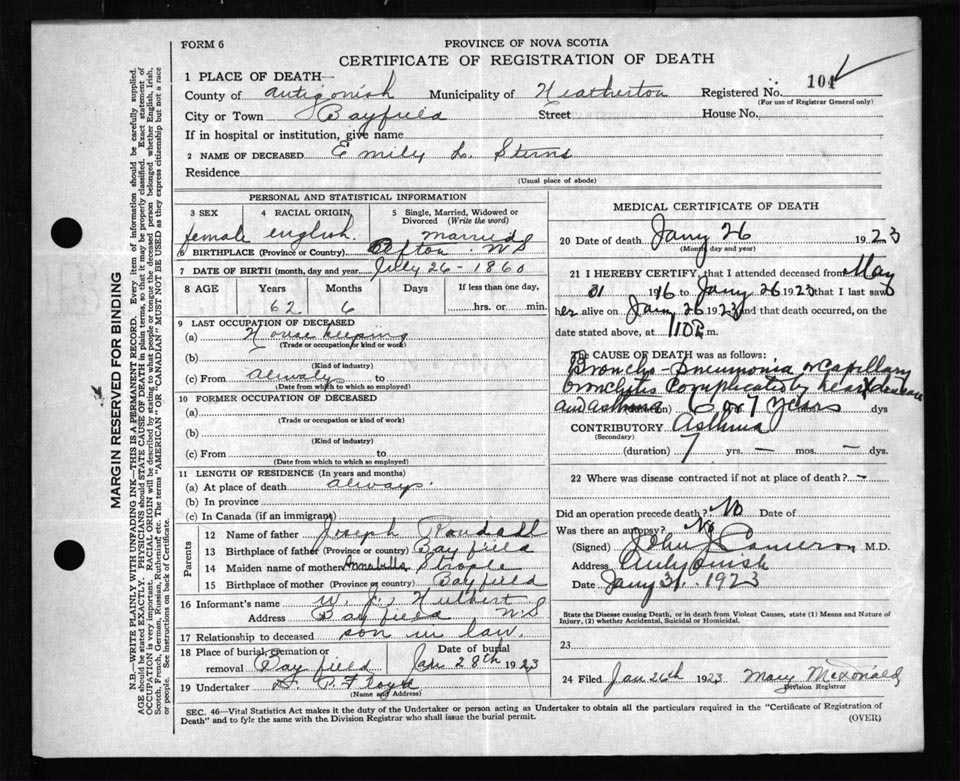 FORM 6
PROVINCE OF NOVA SCOTIA
CERTIFICATE OF REGISTRATION OF DEATH
1 PLACE OF DEATH—
County of Antigonish Municipality of Heatherton Registered No. 104
(For use of Registrar General only)
City or Town Bayfield Street House No.
If in hospital or institution, give name
2 NAME OF DECEASED Emily L. Sterns
Residence
(Usual place of abode)
PERSONAL AND STATISTICAL INFORMATION
3 SEX 4 RACIAL ORIGIN 5 Single, Married, Widowed or Divorced (Write the word)
female english. Married
6 BIRTHPLACE (Province or Country) N.S
7 DATE OF BIRTH (month, day and year) July 26 - 1860
8 AGE Years Months Days If less than one day,
62 6 hrs. or min.
9 LAST OCCUPATION OF DECEASED
(a) House keeping
(Trade or occupation or kind of work)
(b)
(Kind of industry)
(c) From always to
(Date from which to which so employed)
10 FORMER OCCUPATION OF DECEASED
(a)
(Trade or occupation or kind of work)
(b)
(Kind of industry)
(c) From to
(Date from which to which so employed)
11 LENGTH OF RESIDENCE (In years and months)
(a) At place of death always.
(b) In province
(c) In Canada (if an immigrant)
Parents
12 Name of father Joseph Randall
13 Birthplace of father (Province or country) Bayfield
14 Maiden name of mother Annabella Strople
15 Birthplace of mother (Province or country) Bayfield
16 Informant's name W. J. Hulbert
Address Bayfield N.S
17 Relationship to deceased son in law.
18 Place of burial, cremation or removal Bayfield Date of burial Jan 28th 1923
19 Undertaker
(Name and Address)
MEDICAL CERTIFICATE OF DEATH
20 Date of death Jany 26 1923
(Month, day and year)
21 I HEREBY CERTIFY, that I attended deceased from May
31 1916 to Jany 26 1923 that I last saw
her alive on Jany 26 1923 and that death occurred, on the
date stated above, at m.
The CAUSE OF DEATH was as follows:
Broncho-Pneumonia or capillary
bronchytis complicated by heart disease
and asthma 6 or 7 years dys
CONTRIBUTORY Asthma
(Secondary)
(duration) 7 yrs. — mos. — dys.
22 Where was disease contracted if not at place of death? —
Did an operation precede death? No Date of
Was there an autopsy? No
(Signed) John J Cameron M.D.
Address Antigonish
Date Jany 31. 1923
State the Disease causing Death, or in death from Violent Causes, state (1) Means and Nature of
Injury, (2) whether Accidental, Suicidal or Homicidal.
23
24 Filed Jan 26th 1923 Mary McDonald
Division Registrar
SEC. 46—Vital Statistics Act makes it the duty of the Undertaker or person acting as Undertaker to obtain all the particulars required in the "Certificate of Registration of
Death" and to fyle the same with the Division Registrar who shall issue the burial permit.
(OVER)
MARGIN RESERVED FOR BINDING
N.B.—WRITE PLAINLY WITH UNFADING INK—THIS IS A PERMANENT RECORD. Every item of information should be carefully supplied.
AGE should be stated EXACTLY. PHYSICIANS should STATE CAUSE OF DEATH in plain terms, so that it may be properly classified. Exact statement of
OCCUPATION is very important. RACIAL ORIGIN will be described by stating to what people or tongue the deceased person belonged whether English, Irish,
Scotch, French, German, Russian, Ruthenian, etc. The terms "AMERICAN" or "CANADIAN" MUST NOT BE USED as they express citizenship but not a race
or people. See instructions on back of Certificate.